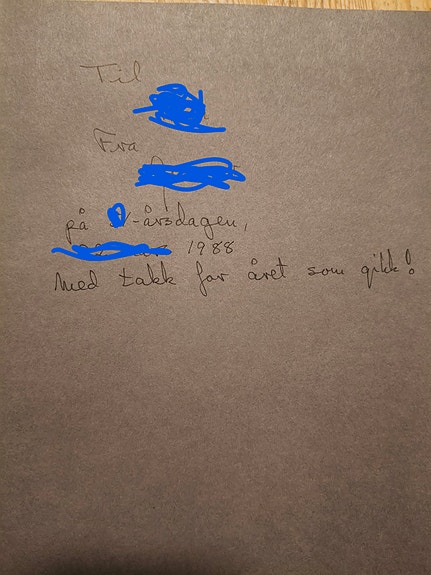 Til
Fra
på -årsdagen,
1988
Med takk for året som gikk!